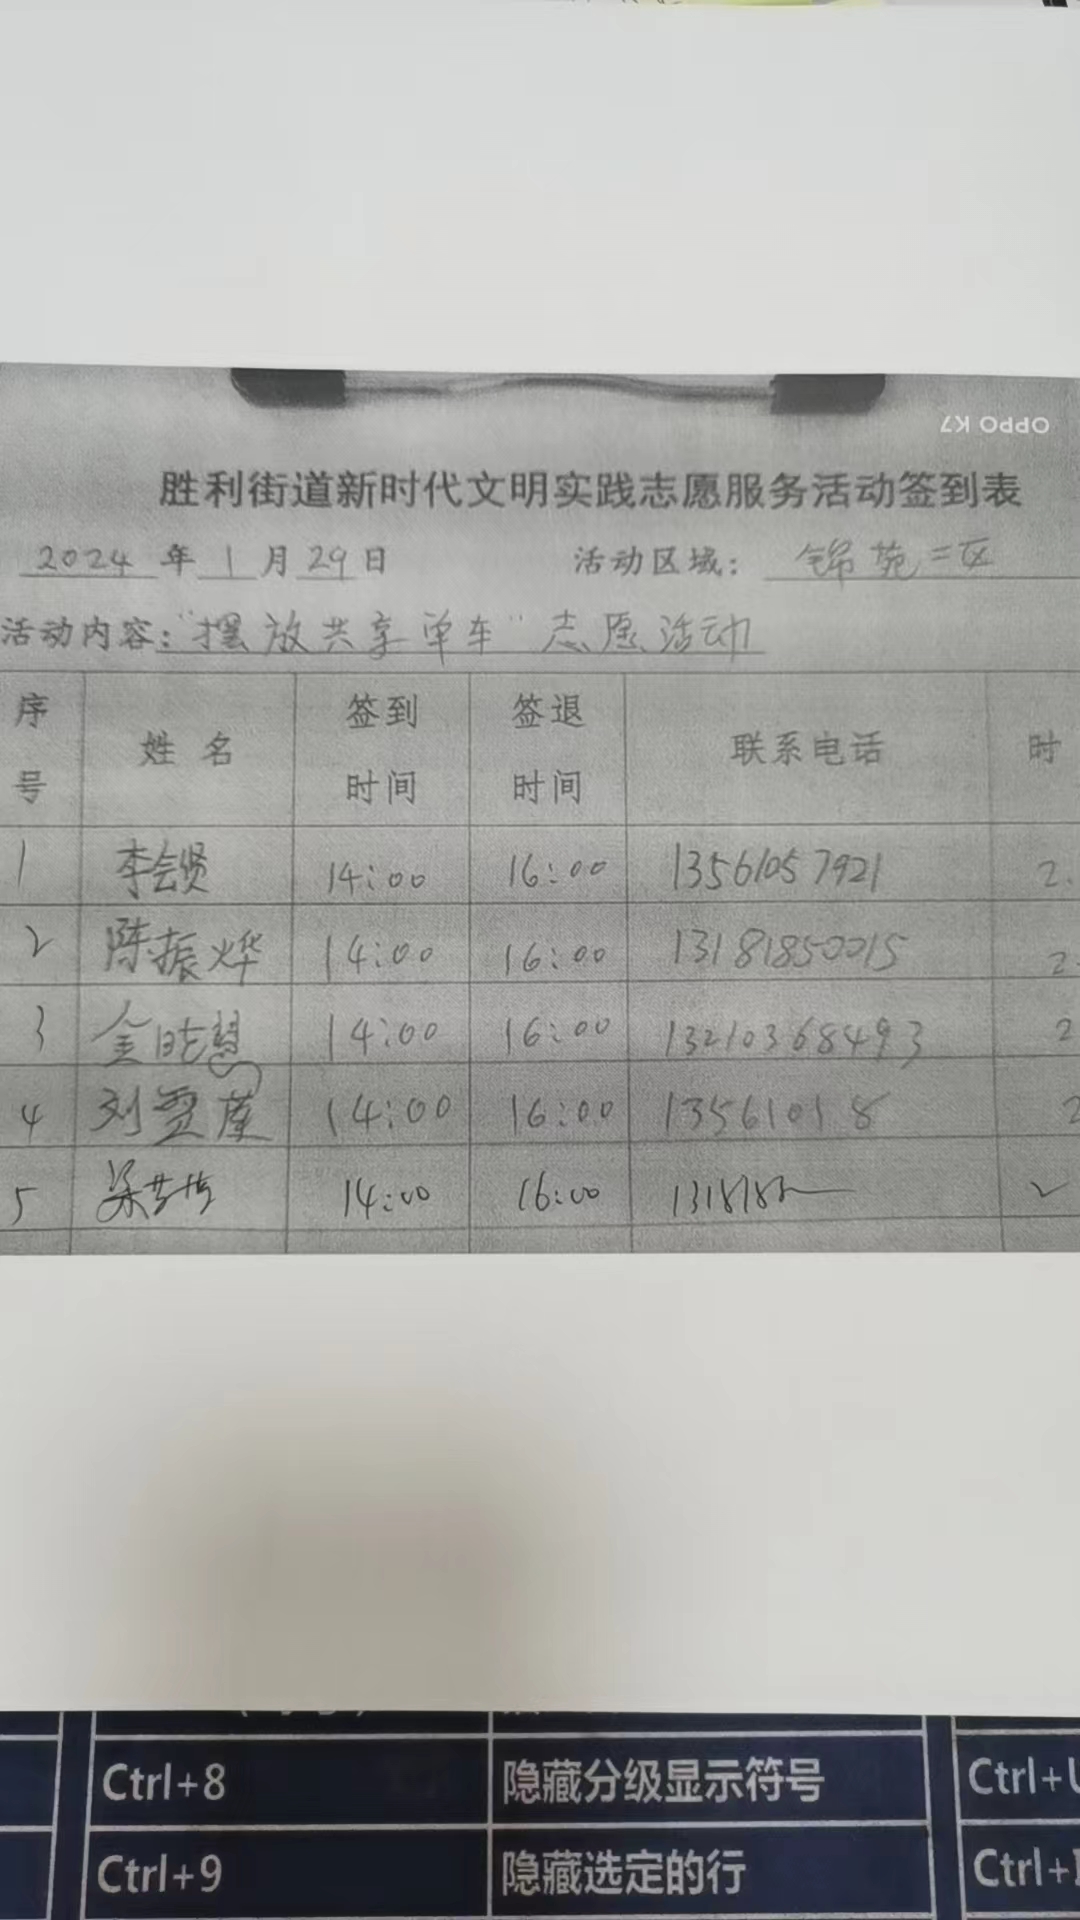 OPPO K7
胜利街道新时代文明实践志愿服务活动签到表
2024年1月29日 活动区域：锦苑二区
活动内容："摆放共享单车"志愿活动
序号 姓名 签到时间 签退时间 联系电话 时
1 李会贤 14:00 16:00 13561057921 2.
2 陈振烨 14:00 16:00 13181850015 2.
3 金晓慧 14:00 16:00 13210368493 2
4 刘 14:00 16:00 13561018 2
5 梁 14:00 16:00 2
Ctrl+8 隐藏分级显示符号 Ctrl+U
Ctrl+9 隐藏选定的行 Ctrl+